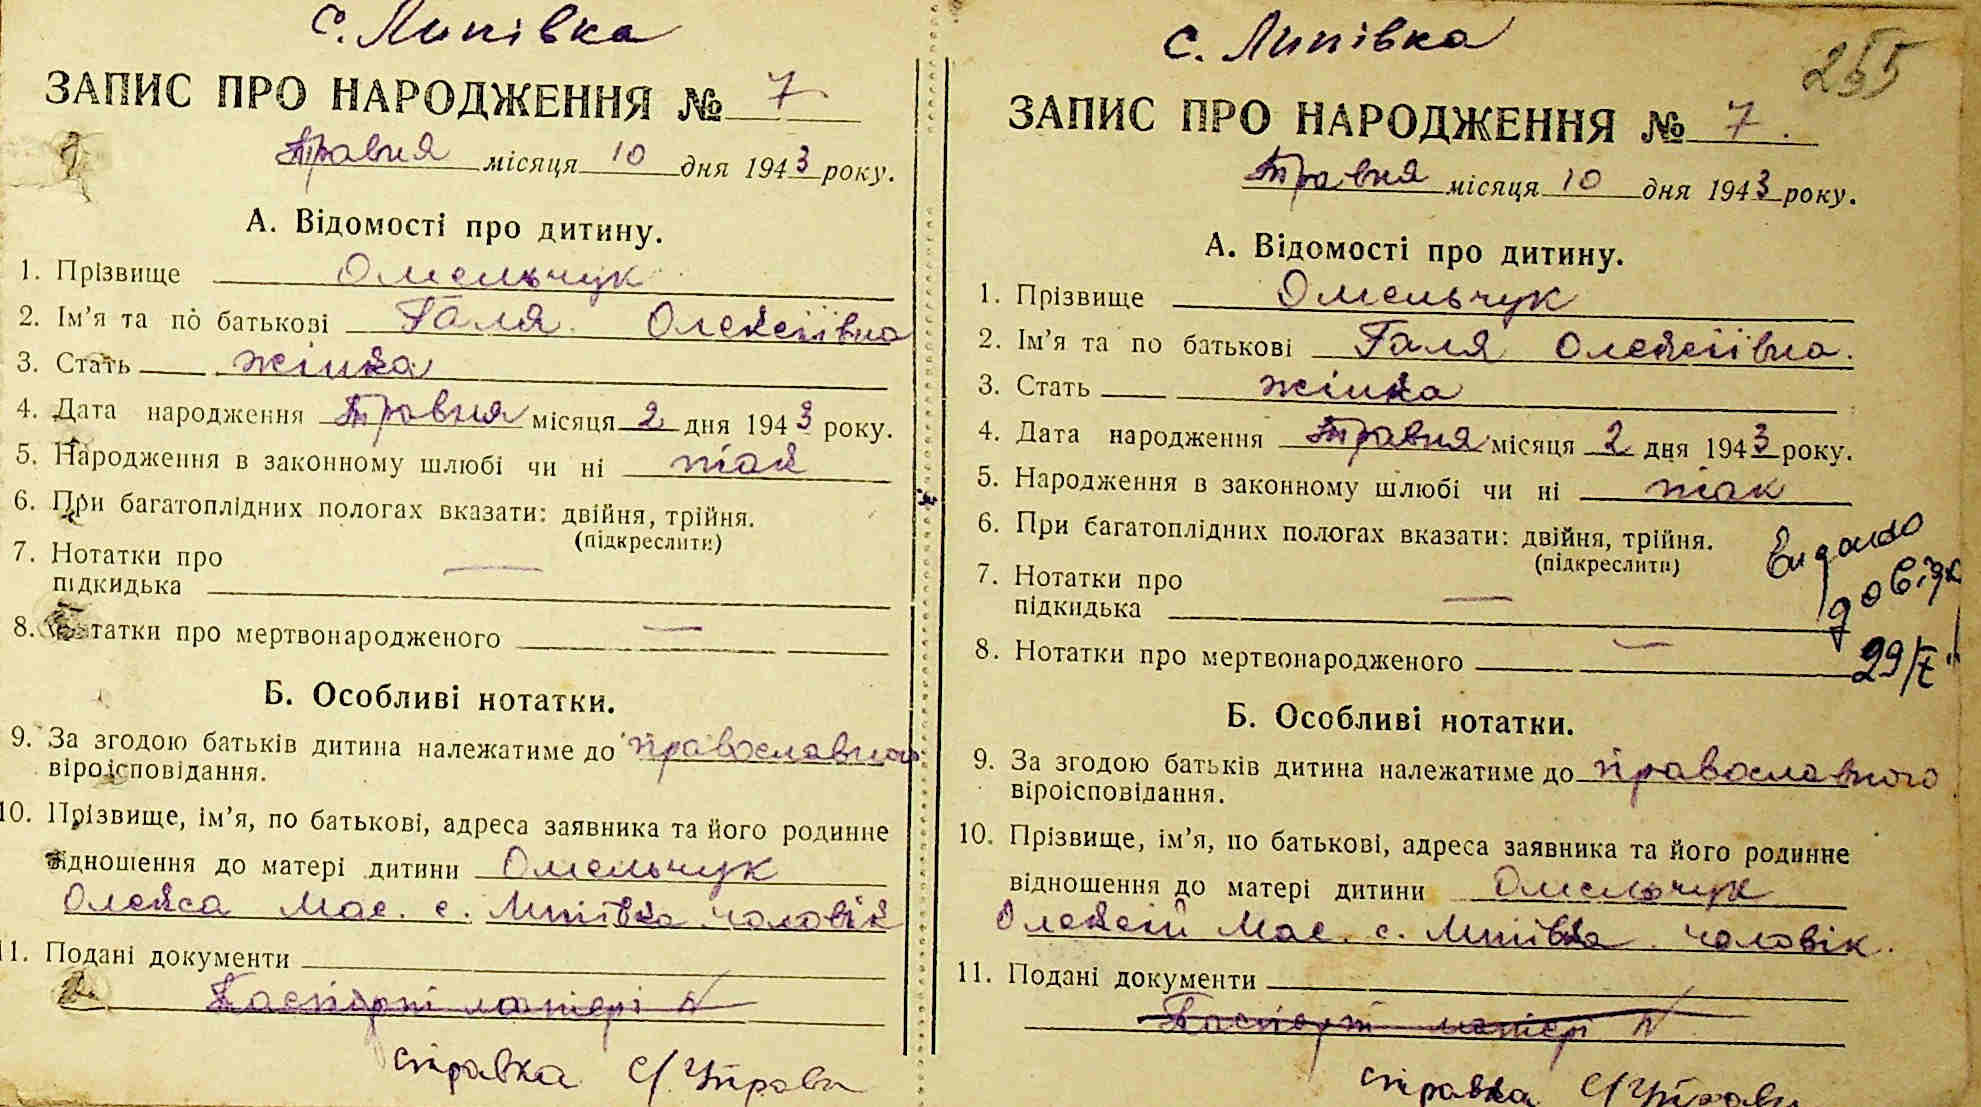 с. Липівка
ЗАПИС ПРО НАРОДЖЕННЯ № 7
Травня місяця 10 дня 1943 року.
А. Відомості про дитину.
1. Прізвище Омельчук
2. Ім'я та по батькові Галя Олексіївна
3. Стать жінка
4. Дата народження Травня місяця 2 дня 1943 року.
5. Народження в законному шлюбі чи ні так
6. При багатоплідних пологах вказати: двійня, трійня.
(підкреслити)
7. Нотатки про —
підкидька
8. Нотатки про мертвонародженого —
Б. Особливі нотатки.
9. За згодою батьків дитина належатиме до православного
віроісповідання.
10. Прізвище, ім'я, по батькові, адреса заявника та його родинне
відношення до матері дитини Омельчук
Олекса Мас. с. Липівка чоловік
11. Подані документи
Паспорт матері №
справка С/Управи
с. Липівка
255
ЗАПИС ПРО НАРОДЖЕННЯ № 7.
Травня місяця 10 дня 1943 року.
А. Відомості про дитину.
1. Прізвище Омельчук
2. Ім'я та по батькові Галя Олексіївна.
3. Стать жінка
4. Дата народження Травня місяця 2 дня 1943 року.
5. Народження в законному шлюбі чи ні так
6. При багатоплідних пологах вказати: двійня, трійня.
(підкреслити)
7. Нотатки про —
підкидька
8. Нотатки про мертвонародженого —
Видано
довідк
29/V
Б. Особливі нотатки.
9. За згодою батьків дитина належатиме до православного
віроісповідання.
10. Прізвище, ім'я, по батькові, адреса заявника та його родинне
відношення до матері дитини Омельчук
Олексій Мас. с. Липівка. чоловік.
11. Подані документи
Паспорт матері №
справка С/Управи